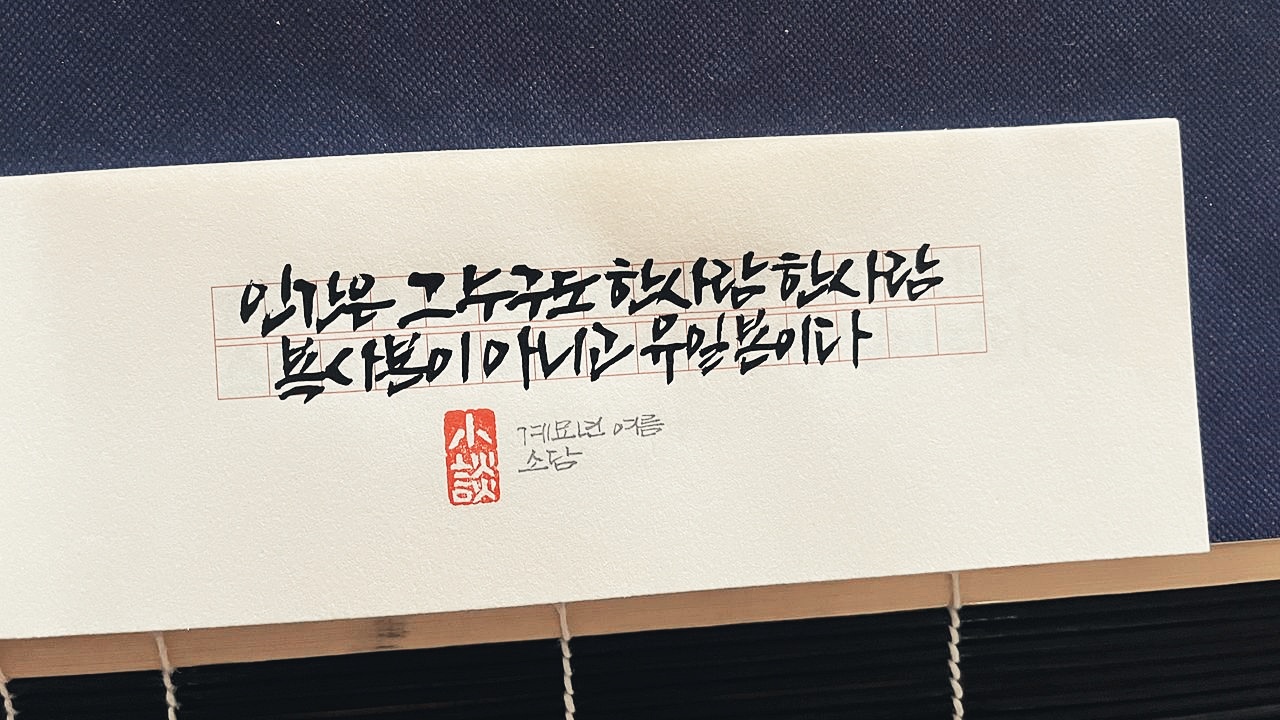 인간은 그 누구도 한사람 한사람
복사본이 아니고 유일본이다
小談
계묘년 여름
소담